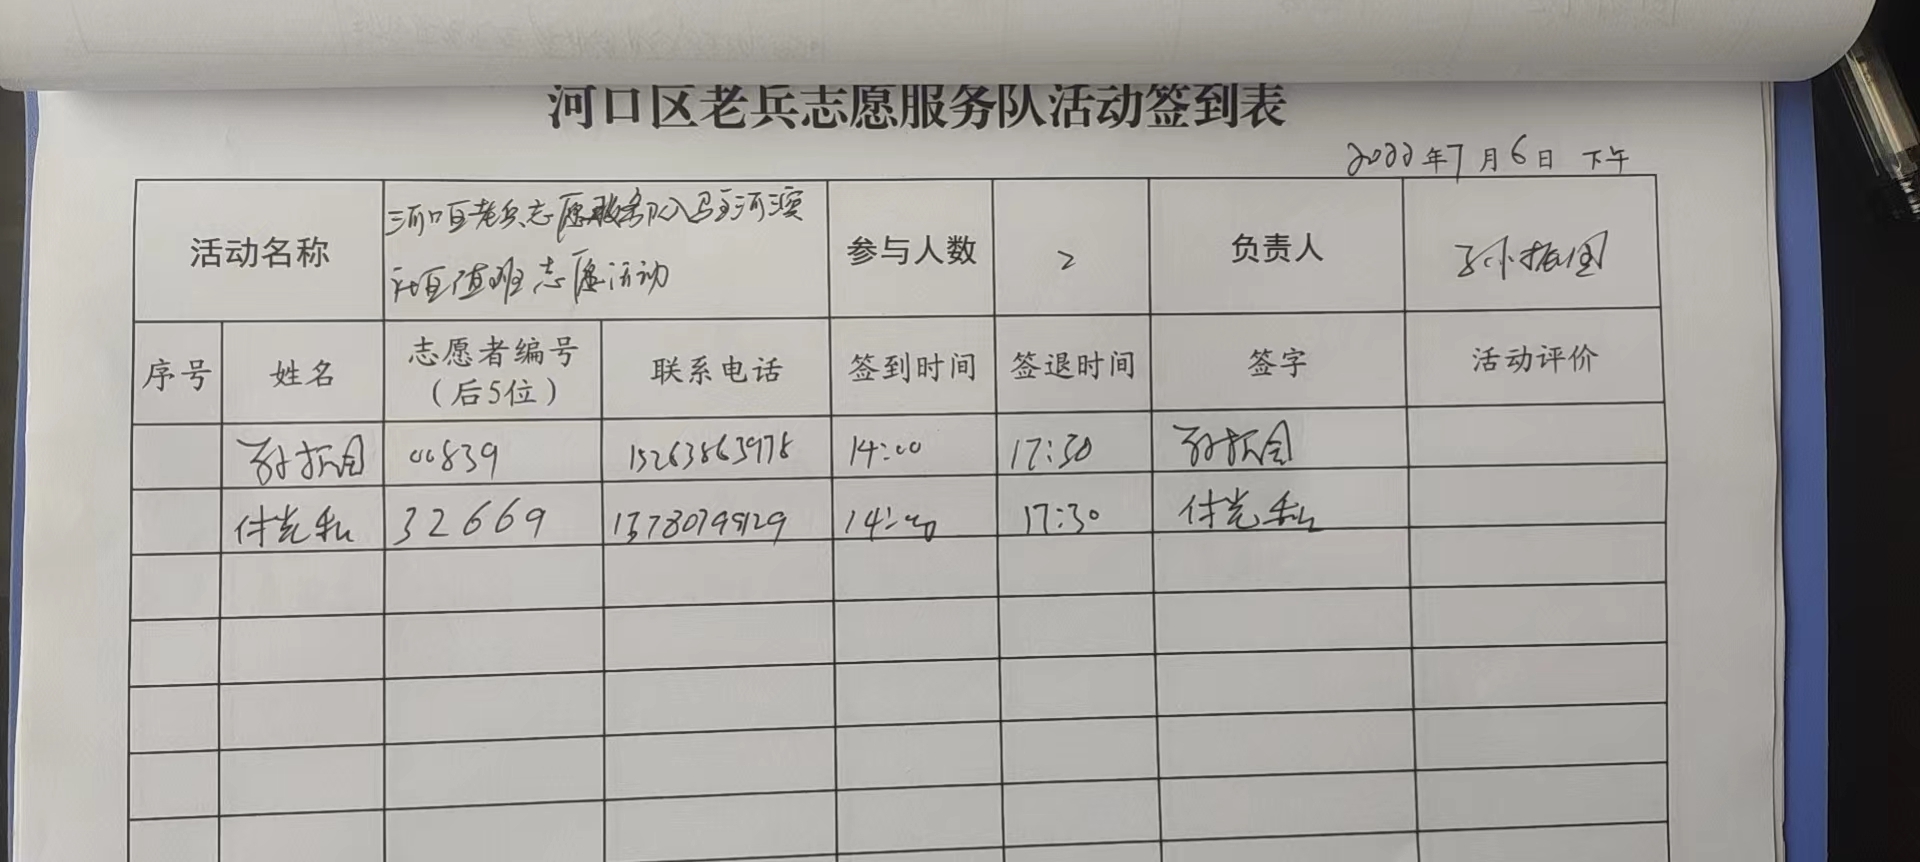 河口区老兵志愿服务队活动签到表
2022年7月6日 下午
活动名称 河口区老兵志愿服务队入 河滨
社区值班志愿活动
参与人数 2 负责人 孙振国
序号 姓名 志愿者编号
（后5位） 联系电话 签到时间 签退时间 签字 活动评价
孙振国 00839 15263863978 14:00 17:30 孙振国
付光 32669 14:00 17:30 付光